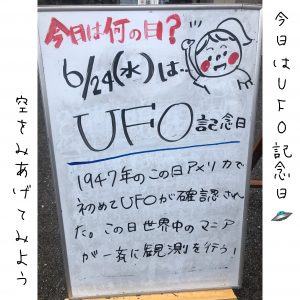 今日は何の日?
6/24(水)は…
UFO記念日
1947年のこの日アメリカで
初めてUFOが確認され
た。この日世界中のマニア
が一斉に観測を行う!
今日はUFO記念日🛸
空をみあげてみよう